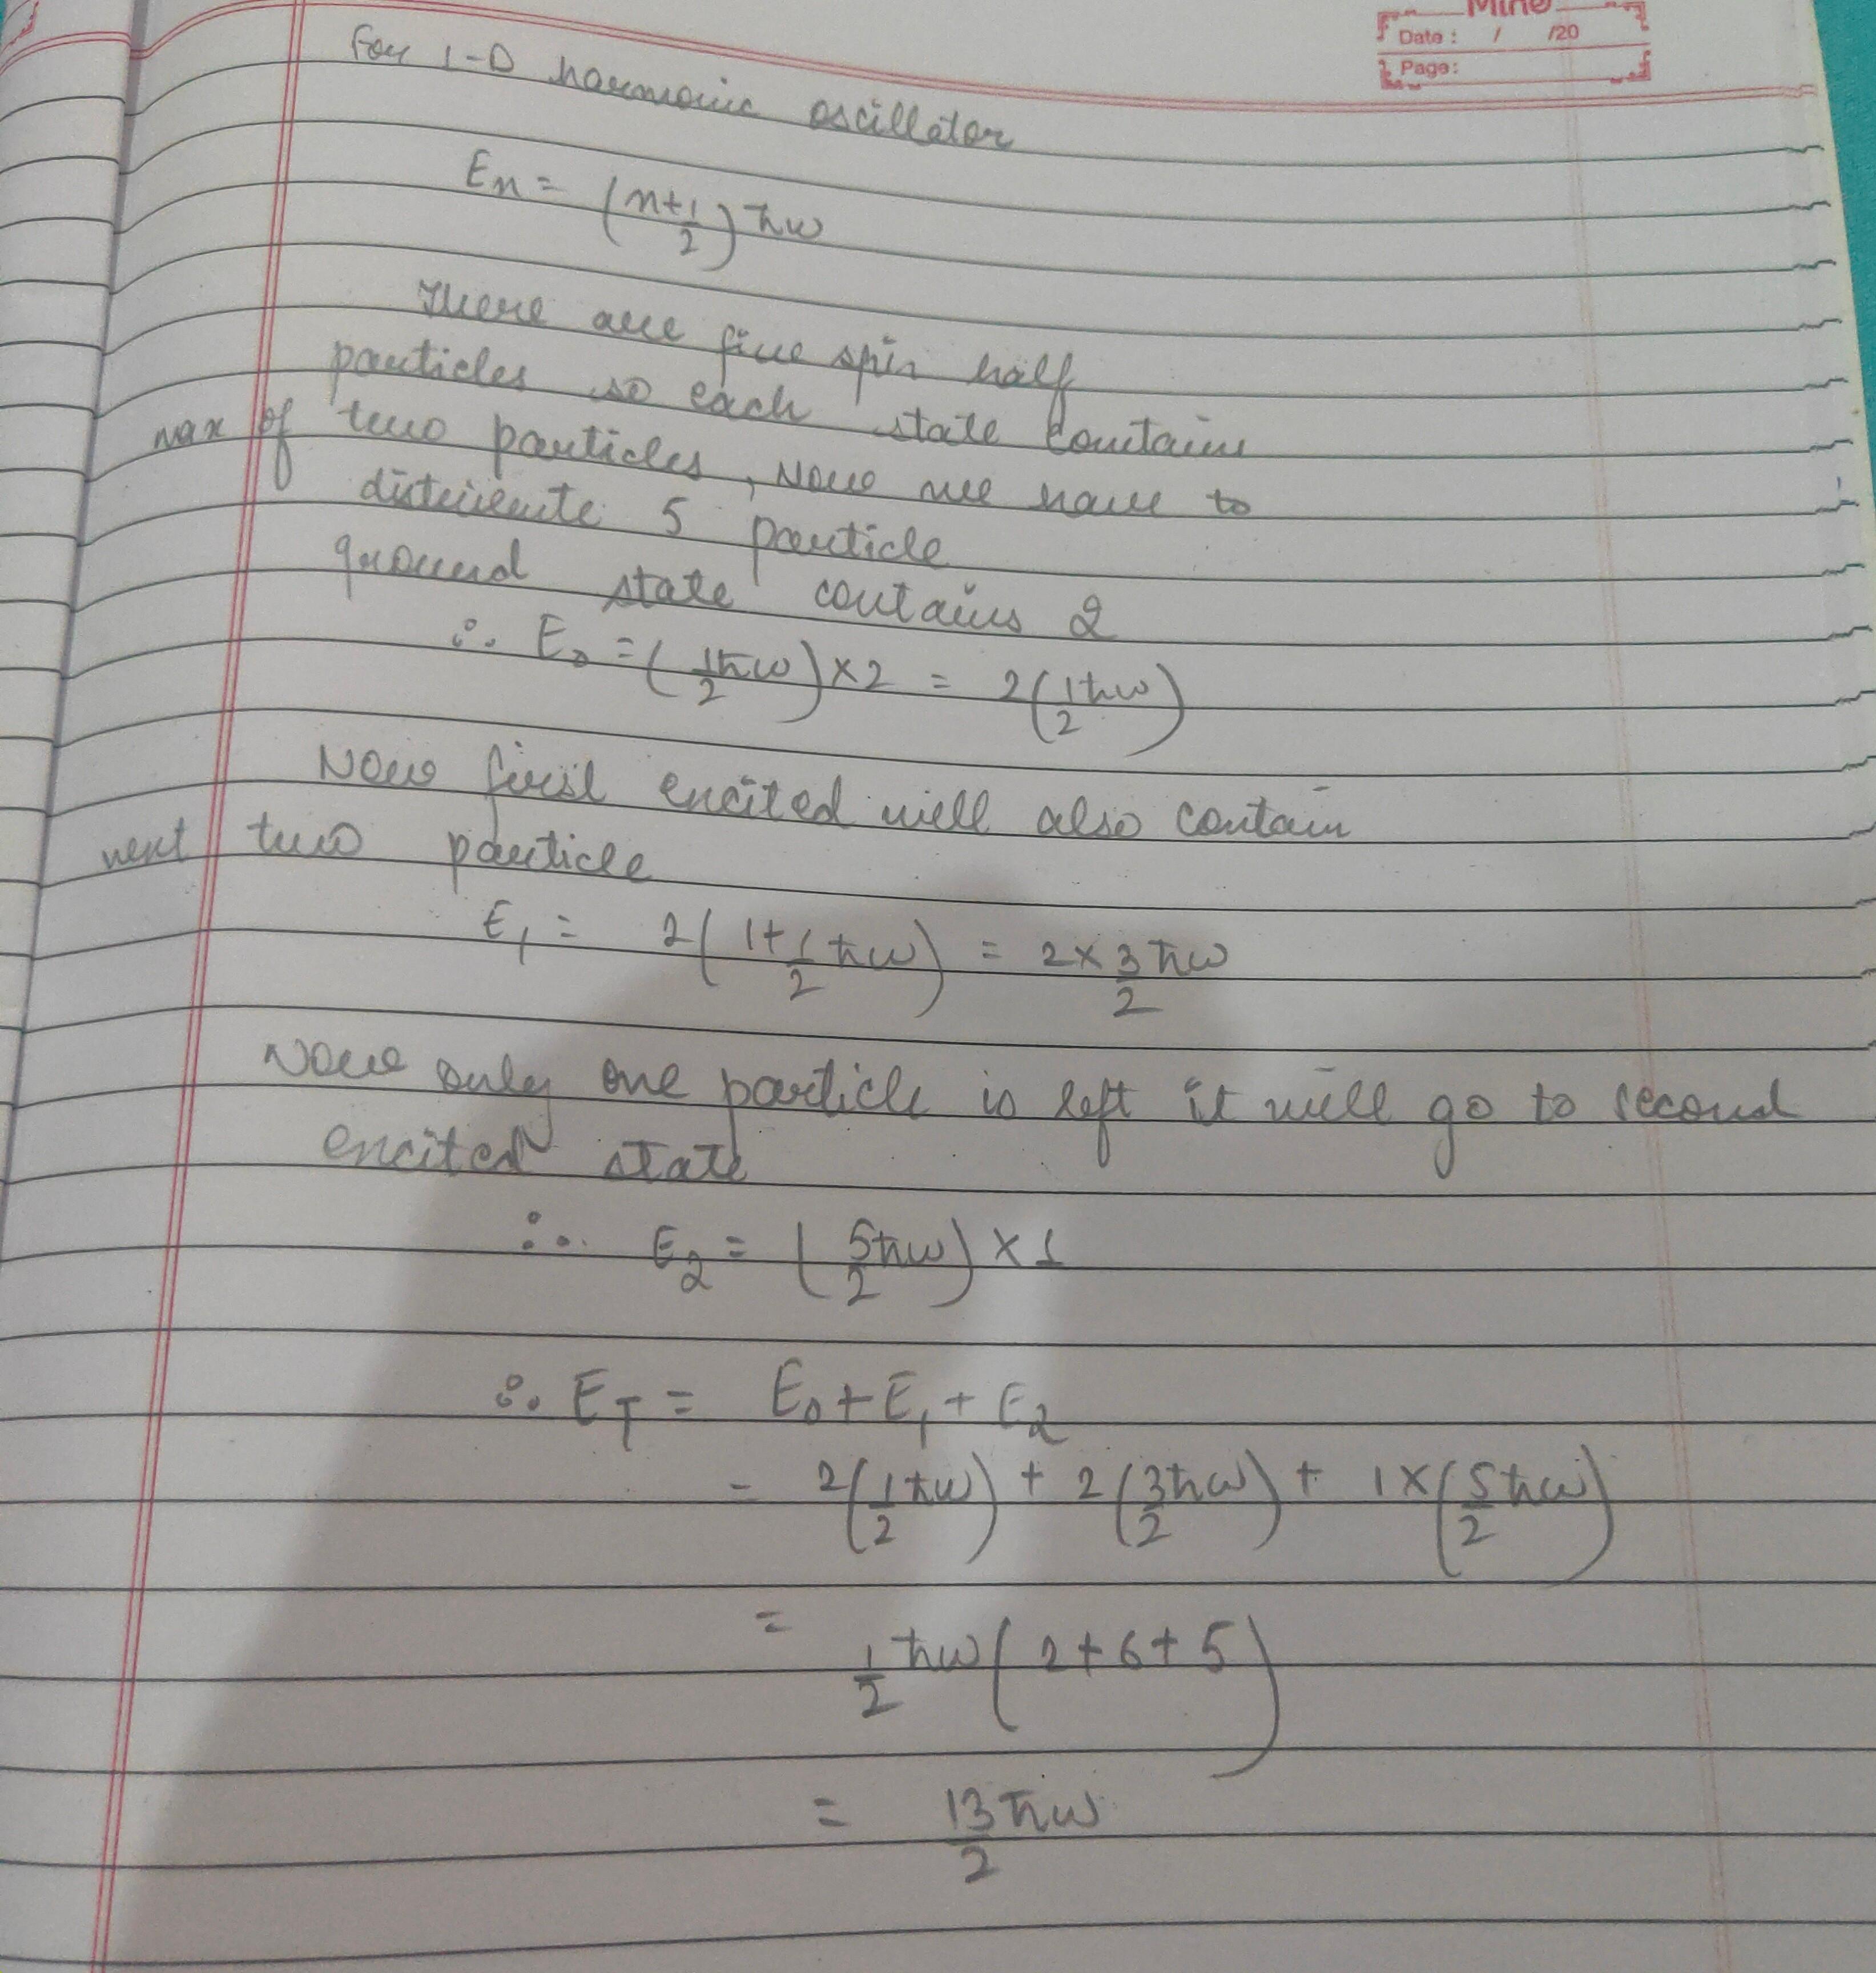 Date : / /20
Page:
For 1-D harmonic oscillator
En = (n+1/2) ħω
There are five spin half
particles so each state contains
max of two particles, Now we have to
distribute 5 particle
ground state contains 2
∴ E0 = (1/2 ħω) × 2 = 2(1/2 ħω)
Now first excited will also contain
next two particle
E1 = 2(1+1/2 ħω) = 2 × 3/2 ħω
Now only one particle is left it will go to second
excited state
∴ E2 = (5/2 ħω) × 1
∴ ET = E0 + E1 + E2
= 2(1/2 ħω) + 2(3/2 ħω) + 1 × (5/2 ħω)
= 1/2 ħω (2+6+5)
= 13/2 ħω